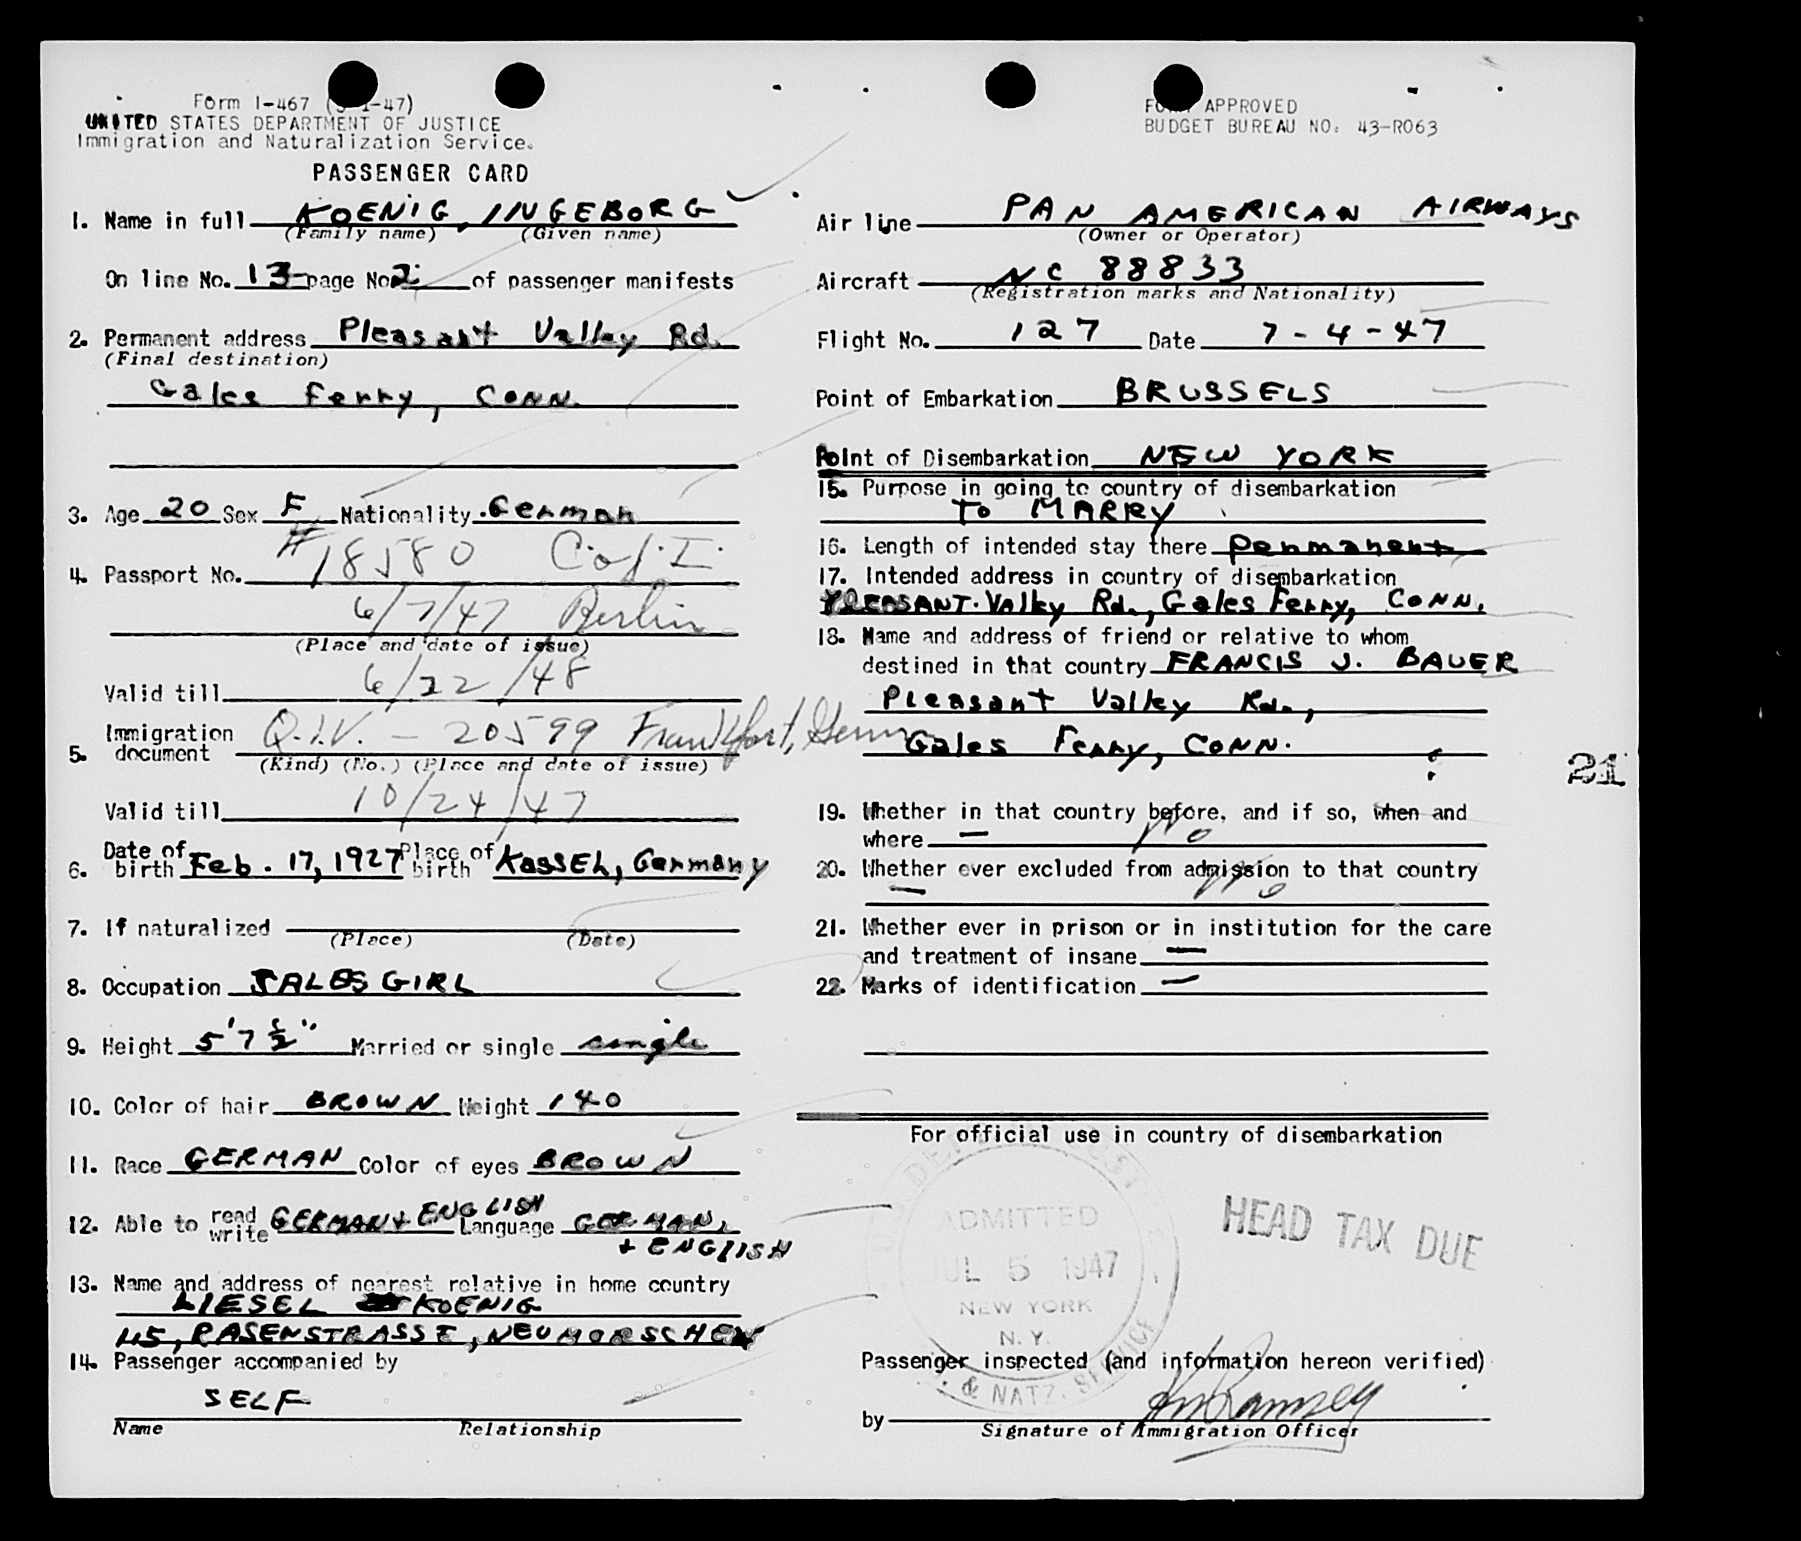 Form I-467 ( -47)
UNITED STATES DEPARTMENT OF JUSTICE
Immigration and Naturalization Service.
PASSENGER CARD
FORM APPROVED
BUDGET BUREAU NO. 43-R063
1. Name in full KOENIG, INGEBORG
(Family name) (Given name)
On line No. 13 page No. 2 of passenger manifests
2. Permanent address Pleasant Valley Rd.
(Final destination)
Gales Ferry, Conn.
3. Age 20 Sex F Nationality German
4. Passport No. #18580 C. of I.
6/7/47 Berlin
(Place and date of issue)
Valid till 6/22/48
5. Immigration document Q.I.V. - 20599 Frankfort, Germ
(Kind) (No.) (Place and date of issue)
Valid till 10/24/47
6. Date of birth Feb. 17, 1927 Place of birth Kassel, Germany
7. If naturalized
(Place) (Date)
8. Occupation SALESGIRL
9. Height 5'7½" Married or single single
10. Color of hair BROWN Weight 140
11. Race GERMAN Color of eyes BROWN
12. Able to read write GERMAN + ENGLISH Language GERMAN,
+ ENGLISH
13. Name and address of nearest relative in home country
LIESEL KOENIG
115, RASENSTRASSE, NEUMORSCHEN
14. Passenger accompanied by
SELF
Name Relationship
Air line PAN AMERICAN AIRWAYS
(Owner or Operator)
Aircraft NC 88833
(Registration marks and Nationality)
Flight No. 127 Date 7-4-47
Point of Embarkation BRUSSELS
Point of Disembarkation NEW YORK
15. Purpose in going to country of disembarkation
To MARRY
16. Length of intended stay there permanent
17. Intended address in country of disembarkation
PLEASANT Valley Rd., Gales Ferry, CONN.
18. Name and address of friend or relative to whom
destined in that country FRANCIS J. BAUER
Pleasant Valley Rd.,
Gales Ferry, CONN.
21
19. Whether in that country before, and if so, when and
where — No
20. Whether ever excluded from admission to that country
— No
21. Whether ever in prison or in institution for the care
and treatment of insane —
22. Marks of identification —
For official use in country of disembarkation
ADMITTED
JUL 5 1947
NEW YORK
N. Y.
& NATZ. SERVICE
HEAD TAX DUE
Passenger inspected (and information hereon verified)
by Ramsey
Signature of Immigration Officer